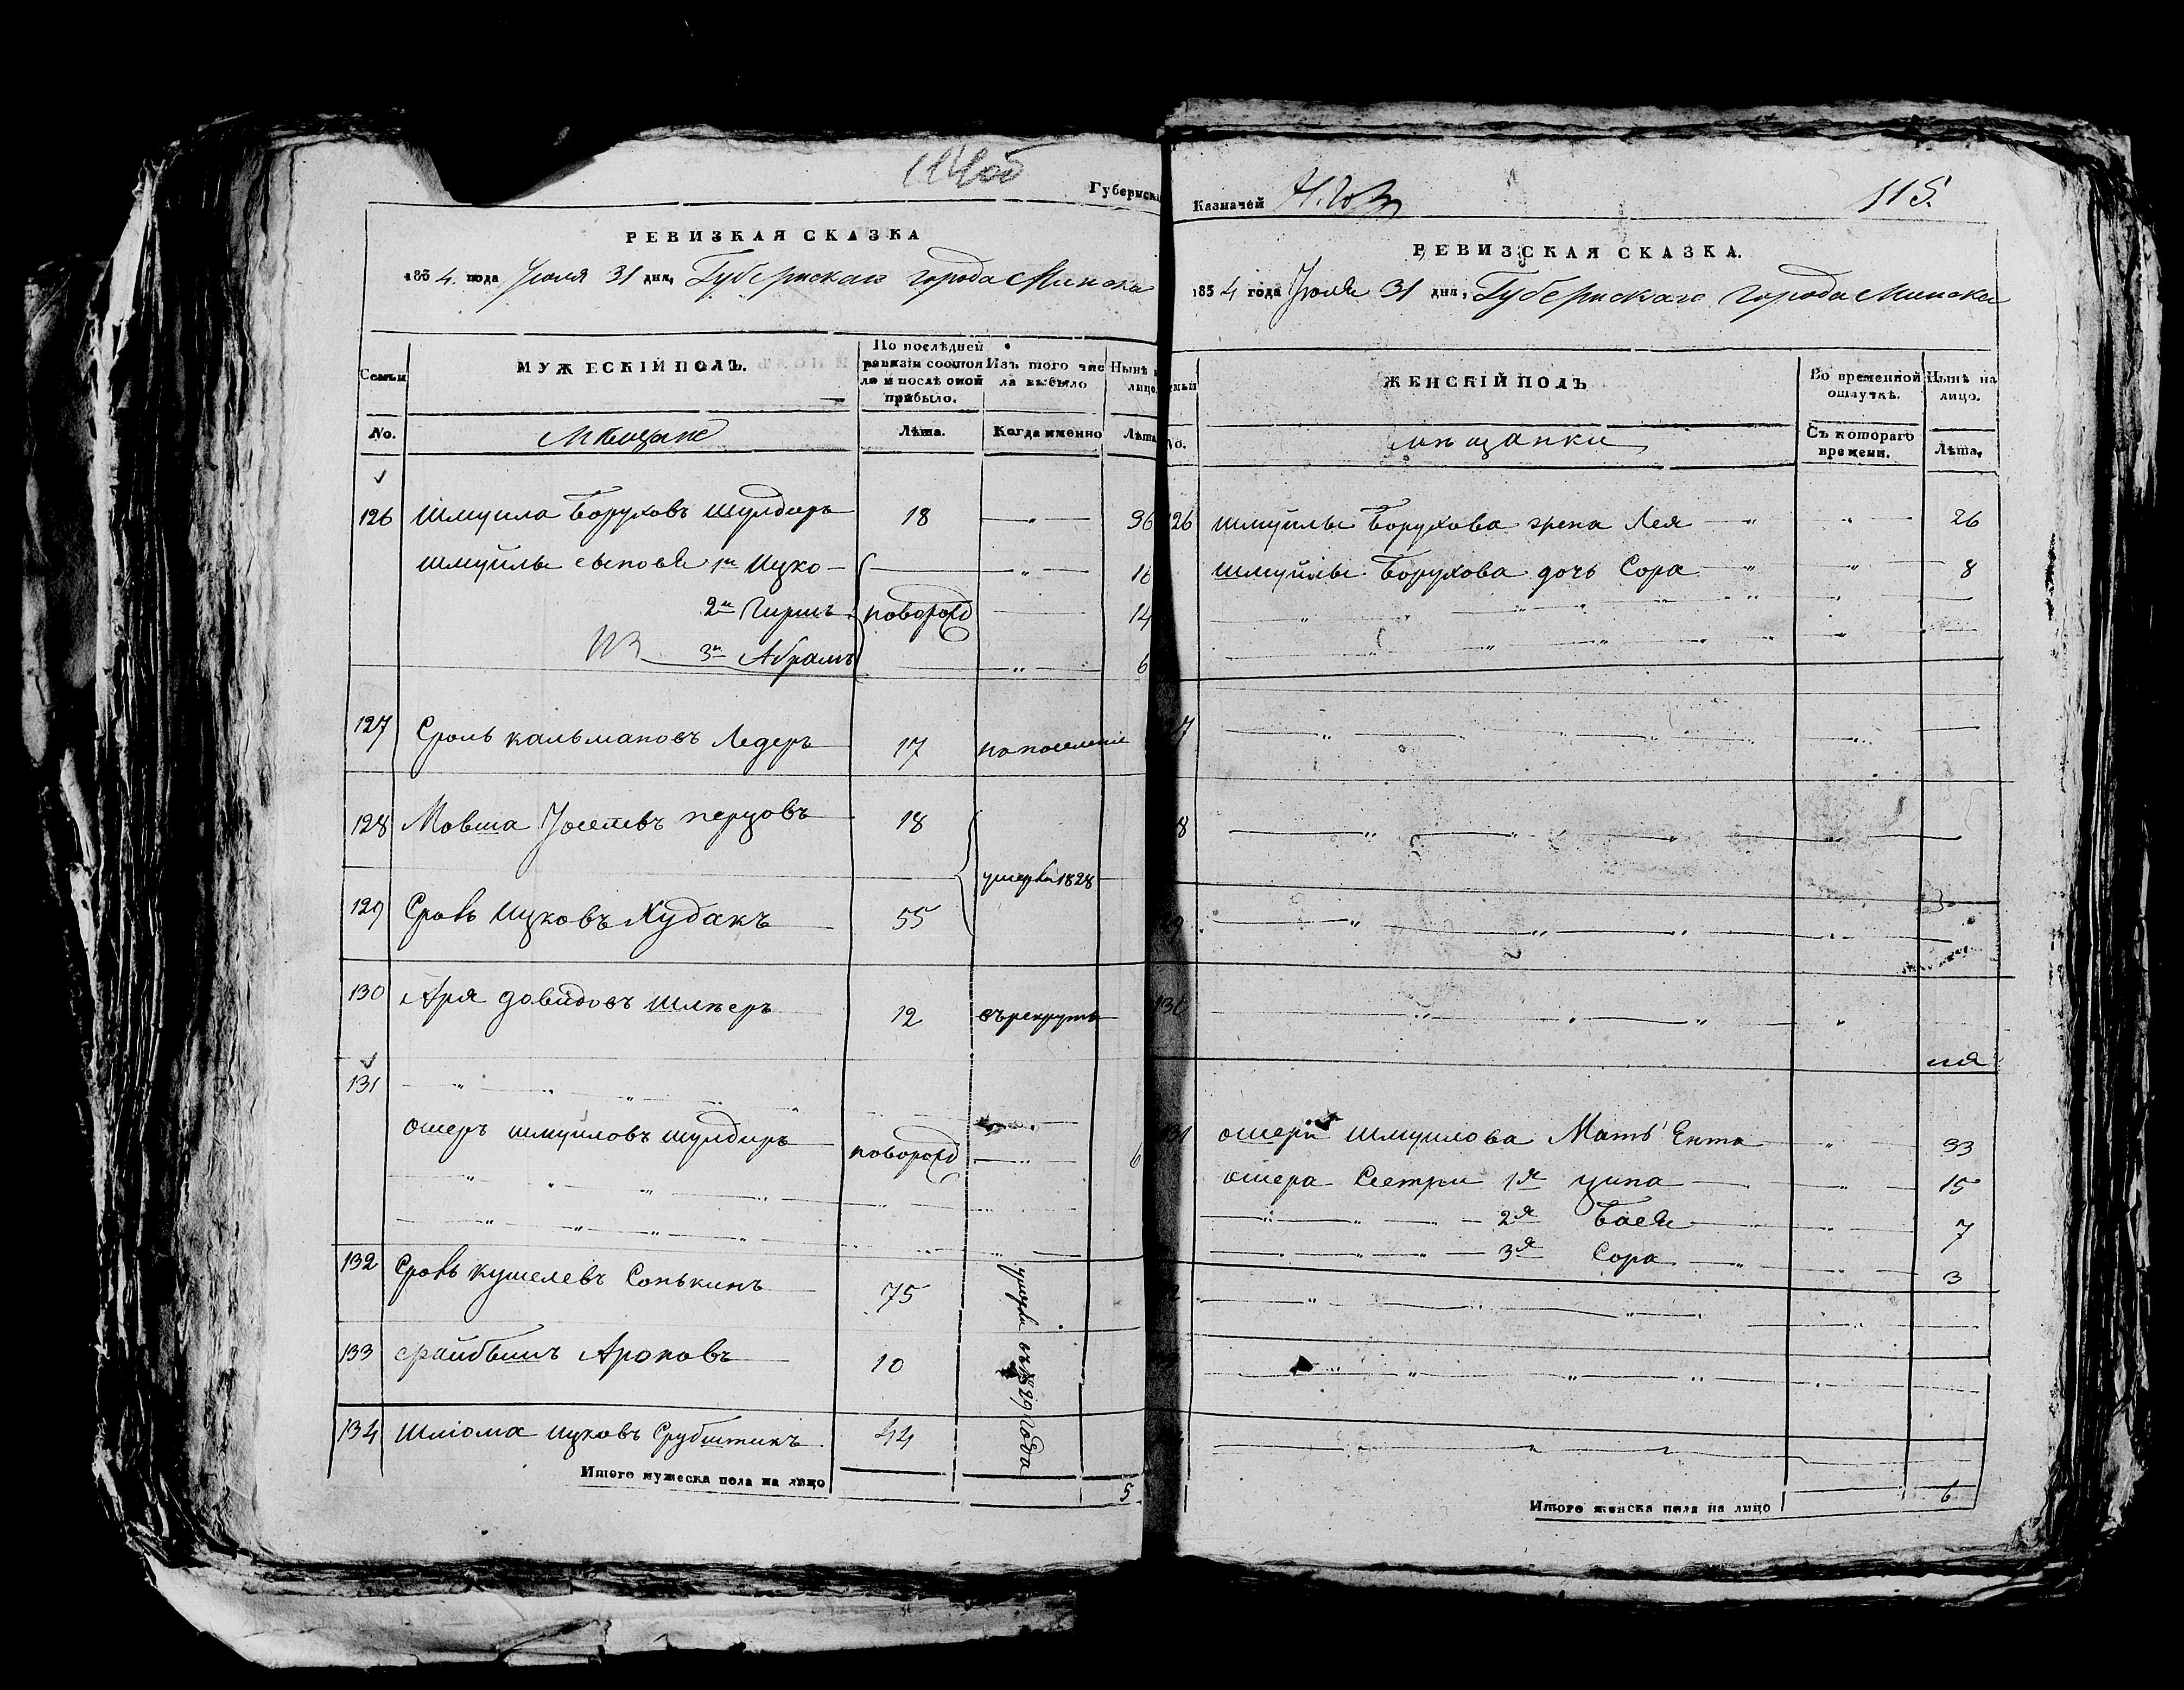 114об
Губернскі
РЕВИЗКАЯ СКАЗКА
1834. года Іюля 31 дня, Губернскаго города Минска
Семьи
МУЖЕСКІЙ ПОЛЪ.
По послѣдней ревизіи состояло и послѣ оной прибыло.
Изъ того числа выбыло
Нынѣ н лицо.
No.
Мѣщане
Лѣта.
Когда именно
Лѣта
126 Шмуила Боруховъ Шулдиръ 18 — „ — 36
Шмуйлы сыновья 1й Ицко — „ — 16
2й Гиршъ новорожд 14
3й Абрамъ — „ — 6
127 Сроль Кальмановъ Ледеръ 17 на поселеніе
128 Мовша Іоселевъ Перцовъ 18
умерли 1828
129 Сроль Ицковъ Худакъ 55
130 Аря Довидовъ Шлнеръ 12 въ рекруты
131
Ошеръ Шмуиловъ Шулдиръ новорожд — „ — 6
132 Сроль Кушелевъ Сонькинъ 75
133 Файбышъ Ароновъ 10
134 Шліома Ицковъ Срубштикъ 44
умерли въ 1829 года
Итого мужеска пола на лицо 5
Казначей
115.
РЕВИЗСКАЯ СКАЗКА.
1834 года Іюля 31 дня, Губернскаго города Минска
мьи
ЖЕНСКІЙ ПОЛЪ
Во временной отлучкѣ.
Нынѣ на лицо.
No.
Мѣщанки
Съ котораго времени.
Лѣта.
126 Шмуйлы Борухова жена Лея — „ „ 26
Шмуйлы Борухова дочь Сора — „ „ 8
7
8
9
130
131 Ошера Шмуилова Мать Ента „ 33
Ошера Сестры 1я Ципа „ 15
2я Бася „ 7
3я Сора „ 3
Итого женска пола на лицо 6